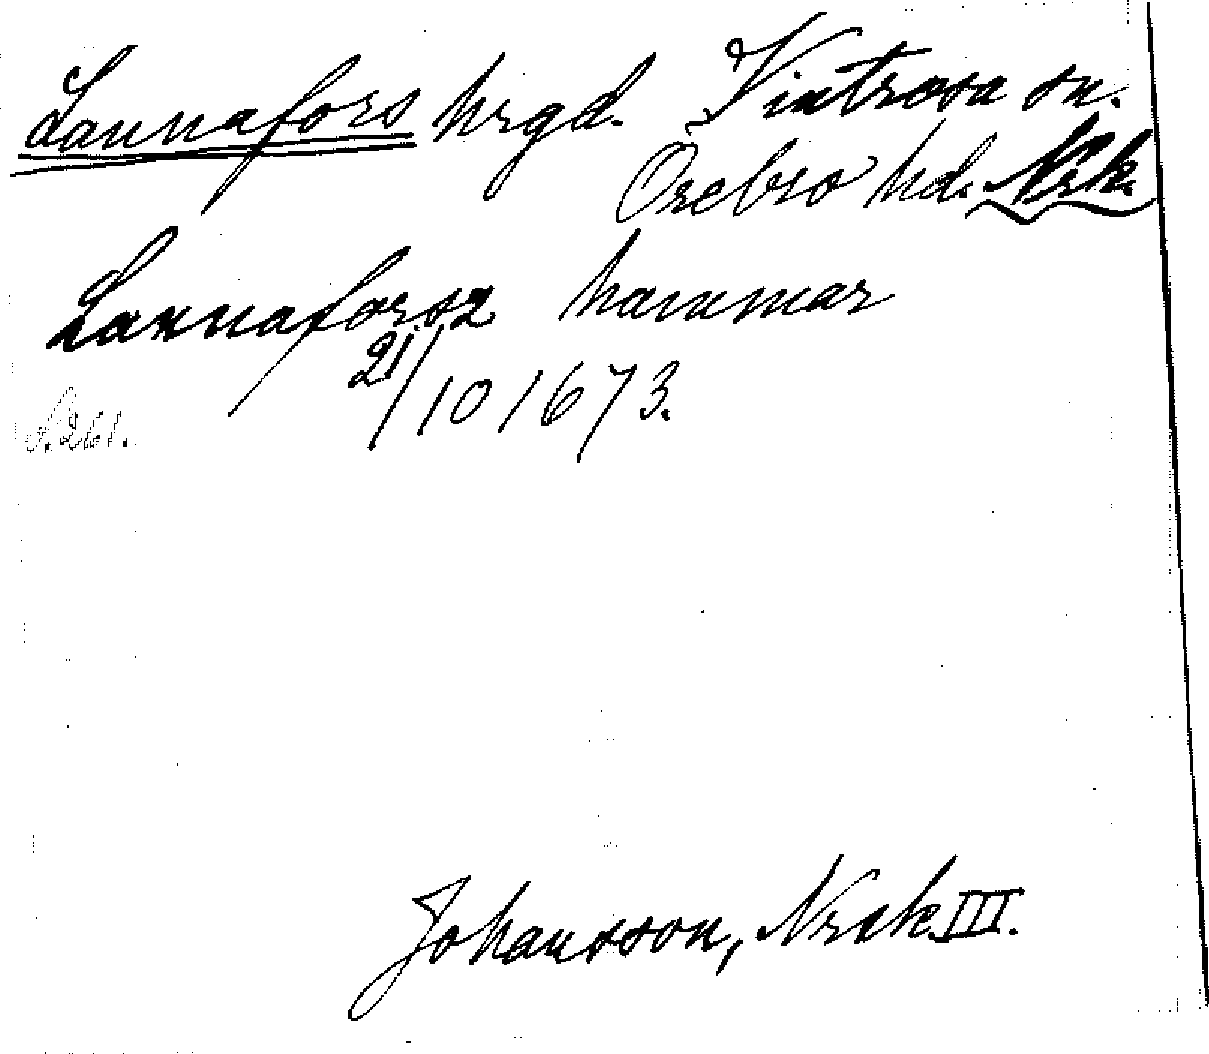 Lannafors hrgd. Vintrosa sn.
Örebro hd. Nrk.
Lannaforsa hammar
21/10 1673.
s. 261.
Johansson, Nrik III.